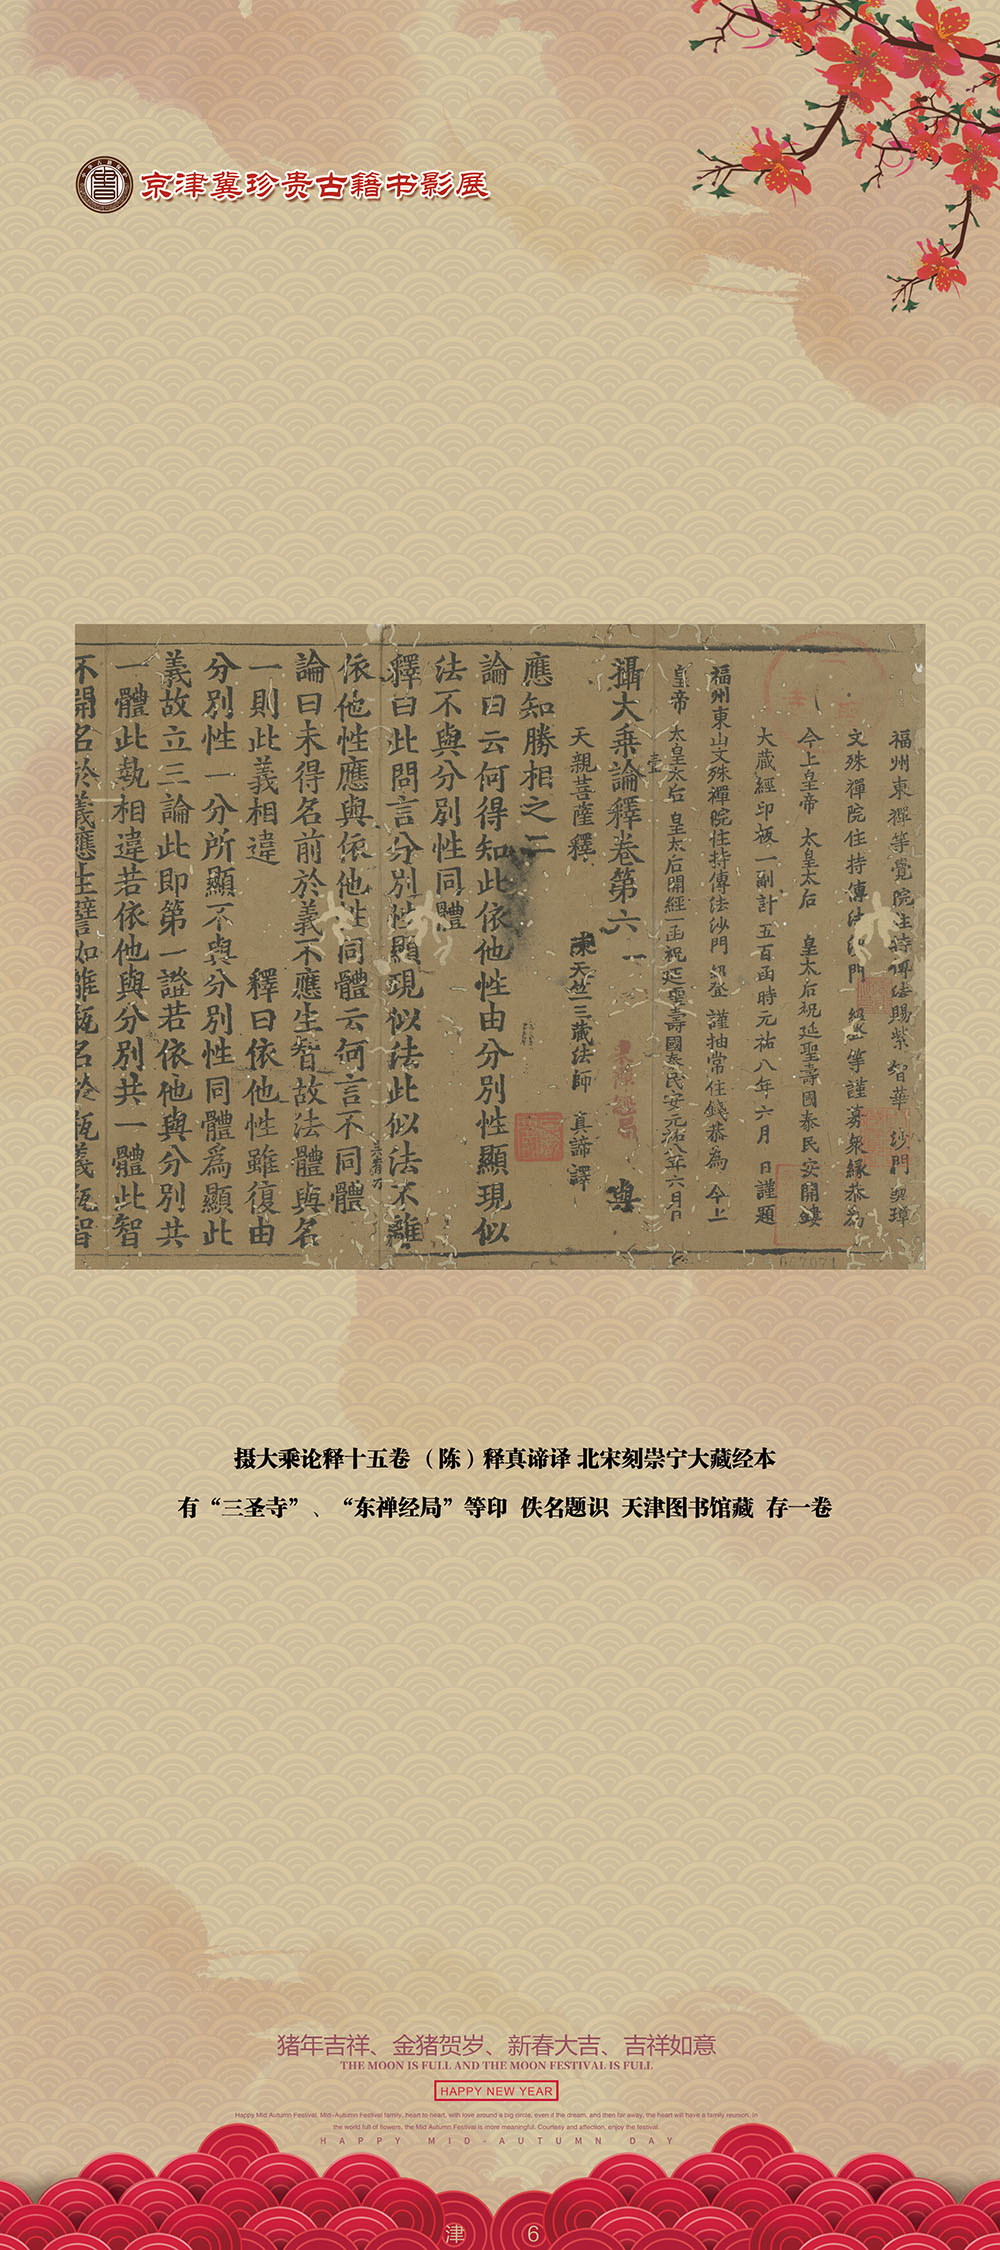 京津冀珍贵古籍书影展
福州東禪等覺院住持傳法賜紫 智華 沙門 契璋
文殊禪院住持傳法沙門 紹登 等謹募衆緣恭為
今上皇帝 太皇太后 皇太后祝延聖壽國泰民安開鏤
大藏經印板一副計五百函時元祐八年六月 日謹題
福州東山文殊禪院住持傳法沙門 紹登 謹抽常住錢恭為 今上
皇帝 太皇太后 皇太后開經一函祝延聖壽國泰民安元祐八年六月日
攝大乗論釋卷第六 與
天親菩薩釋 陳天竺三藏法師 真諦 譯
應知勝相之二
論曰云何得知此依他性由分別性顯現似
法不與分別性同體
釋曰此問言分別性顯現似法此似法不離
依他性應與依他性同體云何言不同體
論曰未得名前於義不應生智故法體與名
一則此義相違 釋曰依他性雖復由
分別性一分所顯不與分別性同體爲顯此
義故立三論此即第一證若依他與分別共
一體此執相違若依他與分別共一體此智
不開名於義應生譬如離瓶名於瓶義瓶智
摄大乘论释十五卷（陈）释真谛译 北宋刻崇宁大藏经本
有“三圣寺”、“东禅经局”等印 佚名题识 天津图书馆藏 存一卷
猪年吉祥、金猪贺岁、新春大吉、吉祥如意
THE MOON IS FULL AND THE MOON FESTIVAL IS FULL
HAPPY NEW YEAR
Happy Mid Autumn Festival, Mid-Autumn Festival family, heart to heart, with love around a big circle, even if the dream, and then far away, the heart will have a family reunion. In
the world full of flowers, the Mid Autumn Festival is more meaningful. Courtesy and affection, enjoy the festival.
HAPPY MID-AUTUMN DAY
津 6